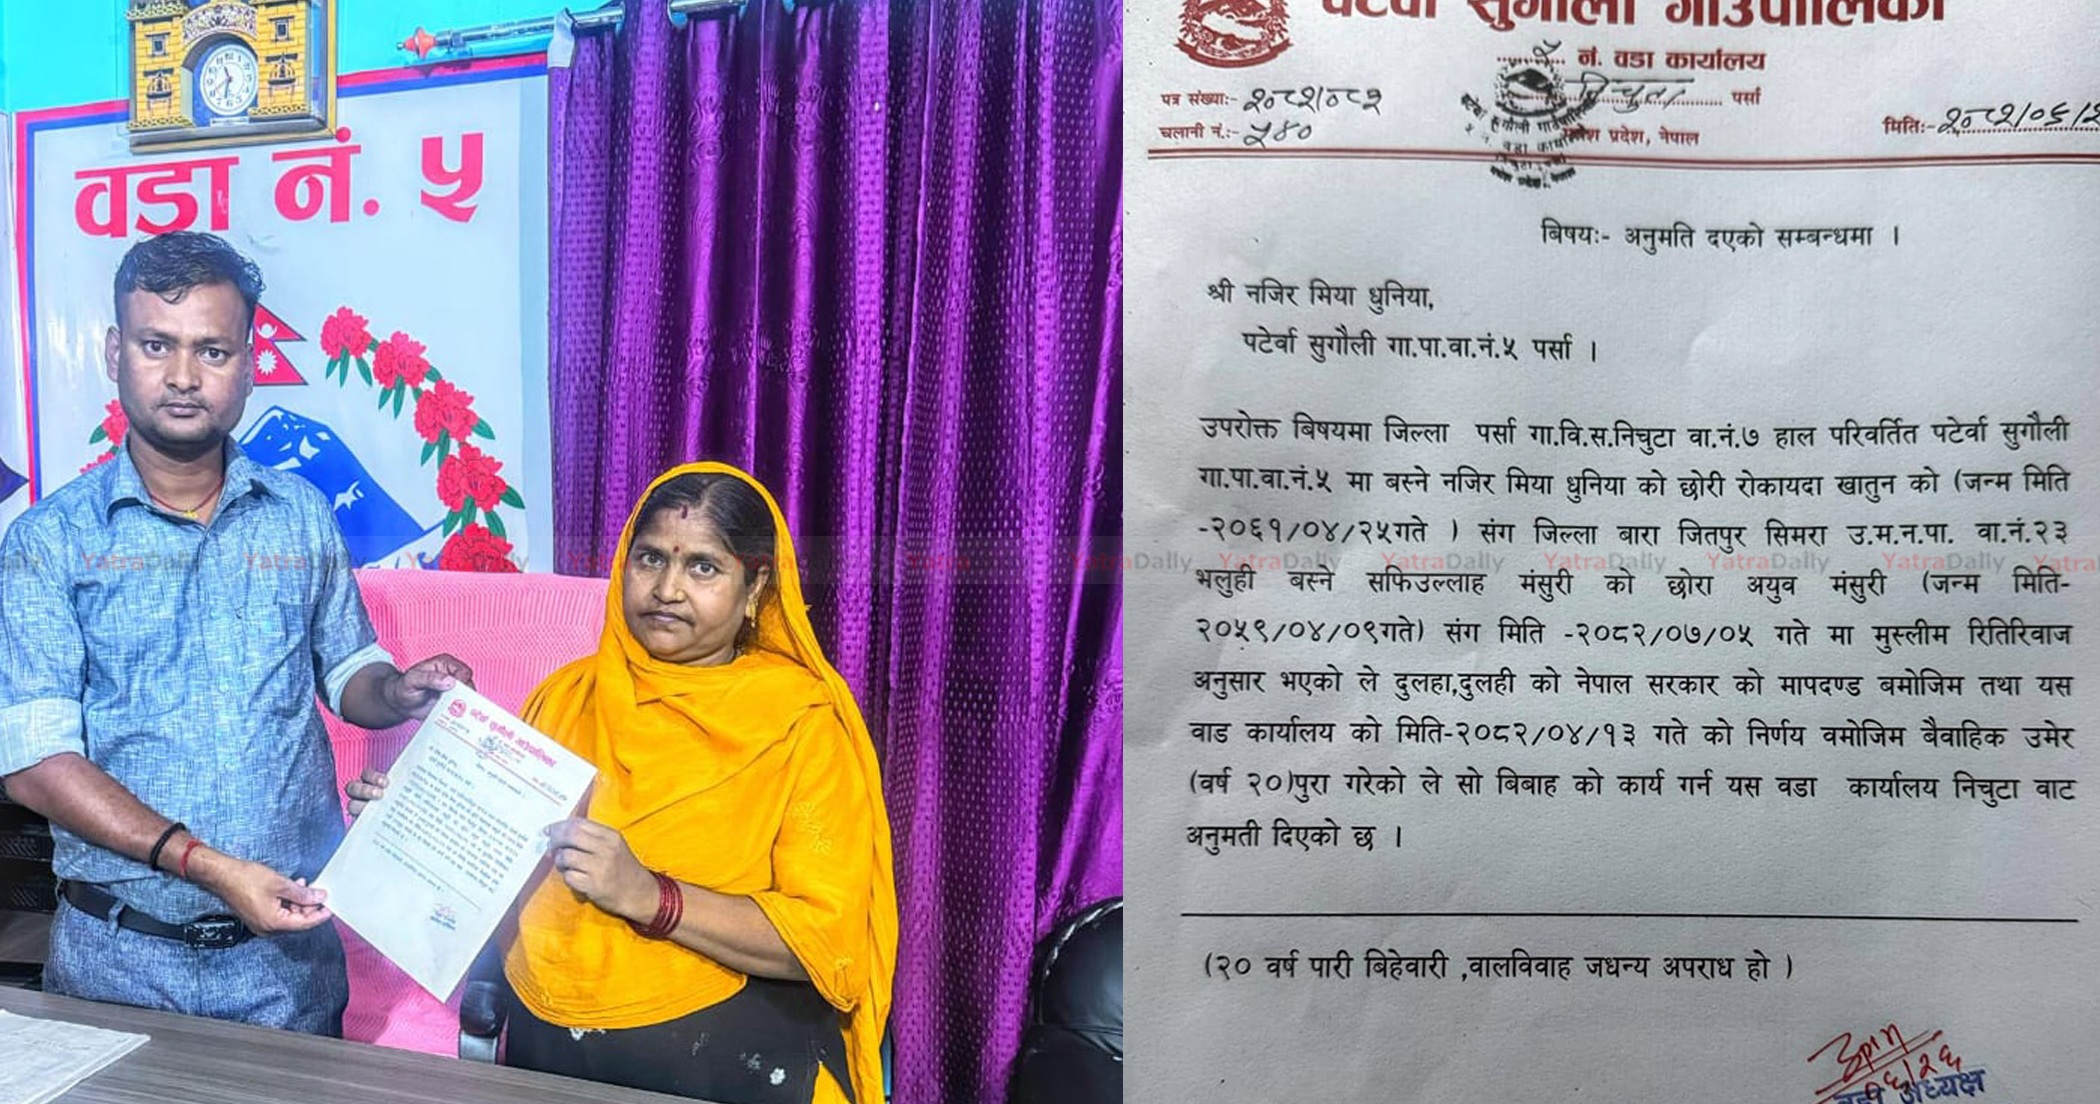 वडा नं. ५
पटेर्वा सुगौली गाउँपालिका
५ नं. वडा कार्यालय
निचुटा पर्सा
पत्र संख्याः- २०८२/०८३
चलानी नं.:- ५४०
प्रदेश, नेपाल
मितिः-२०८२/०६/२
बिषयः- अनुमति दएको सम्बन्धमा ।
श्री नजिर मिया धुनिया,
पटेर्वा सुगौली गा.पा.वा.नं.५ पर्सा ।
उपरोक्त बिषयमा जिल्ला पर्सा गा.वि.स.निचुटा वा.नं.७ हाल परिवर्तित पटेर्वा सुगौली
गा.पा.वा.नं.५ मा बस्ने नजिर मिया धुनिया को छोरी रोकायदा खातुन को (जन्म मिति
-२०६१/०४/२५गते ) संग जिल्ला बारा जितपुर सिमरा उ.म.न.पा. वा.नं.२३
भलुही बस्ने सफिउल्लाह मंसुरी को छोरा अयुव मंसुरी (जन्म मिति-
२०५९/०४/०९गते) संग मिति -२०८२/०७/०५ गते मा मुस्लीम रितिरिवाज
अनुसार भएको ले दुलहा,दुलही को नेपाल सरकार को मापदण्ड बमोजिम तथा यस
वाड कार्यालय को मिति-२०८२/०४/१३ गते को निर्णय वमोजिम बैवाहिक उमेर
(वर्ष २०)पुरा गरेको ले सो बिबाह को कार्य गर्न यस वडा कार्यालय निचुटा वाट
अनुमती दिएको छ ।
(२० वर्ष पारी बिहेवारी ,वालविवाह जधन्य अपराध हो )
वडा अध्यक्ष
YatraDaily YatraDaily YatraDaily YatraDaily YatraDaily YatraDaily YatraDaily YatraDaily